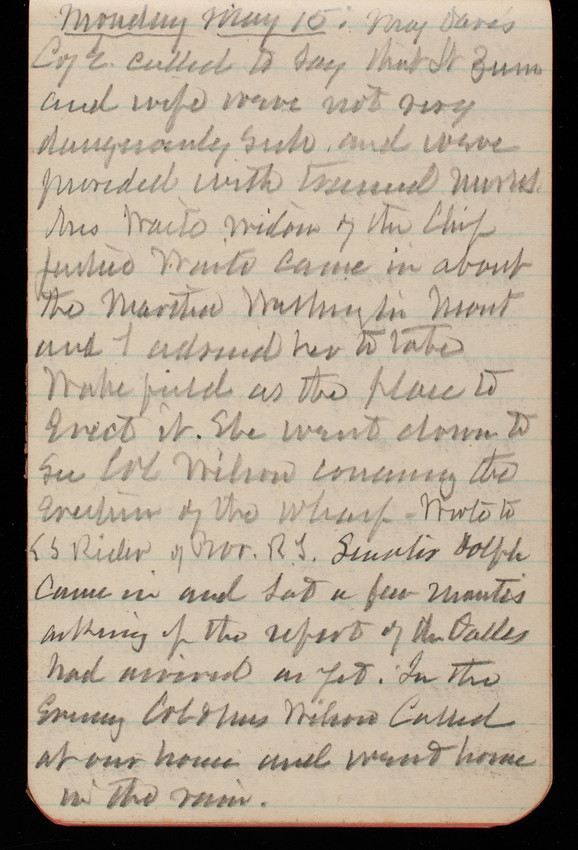 Monday May 15: Maj Davis
Co E. called to say that Lt Zinn
and wife were not very
dangerously sick and were
provided with trained nurses.
Mrs Waite widow of the Chief
Justice Waite came in about
the Martha Washington Mont
and I advised her to take
Wakefield as the place to
Erect it. She went down to
See Col Wilson concerning the
Erection of the wharf - Wrote to
Rider of Prov. R.I. Senator Dolph
came in and sat a few minutes
asking if the report of the Dalles
had arrived as yet. In the
Evening Col & Mrs Wilson Called
at our house and went home
in the rain.